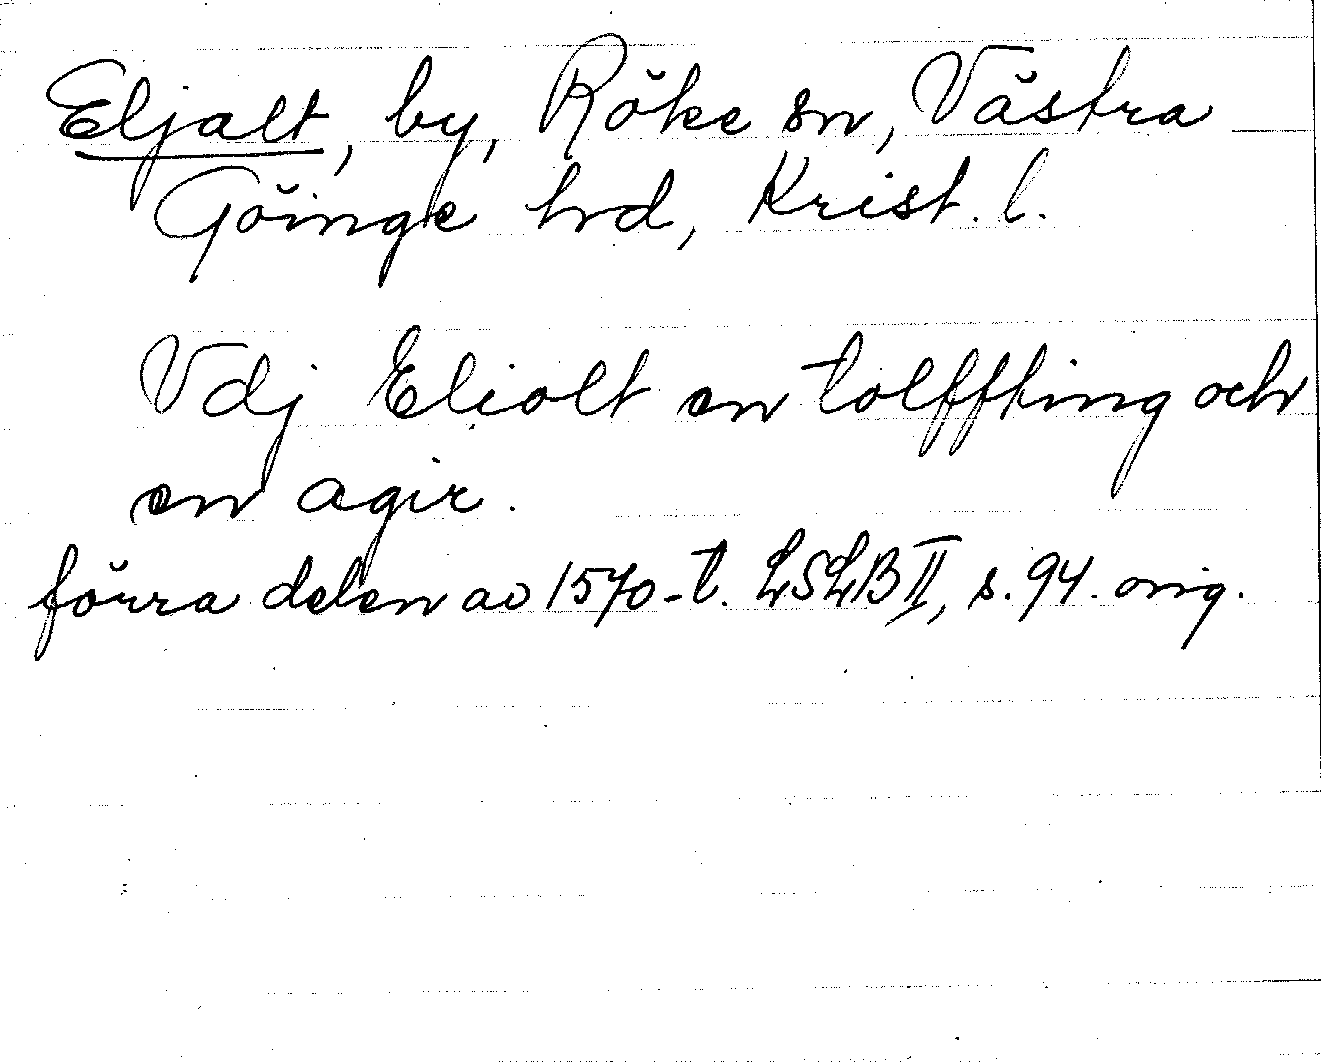 Eljalt, by, Röke sn, Västra
Göinge hrd, Krist. l.
Vdj Eliolt en tolfften̄g och
en agir.
förra delen av 1570-t. LSLB II, s. 94. orig.